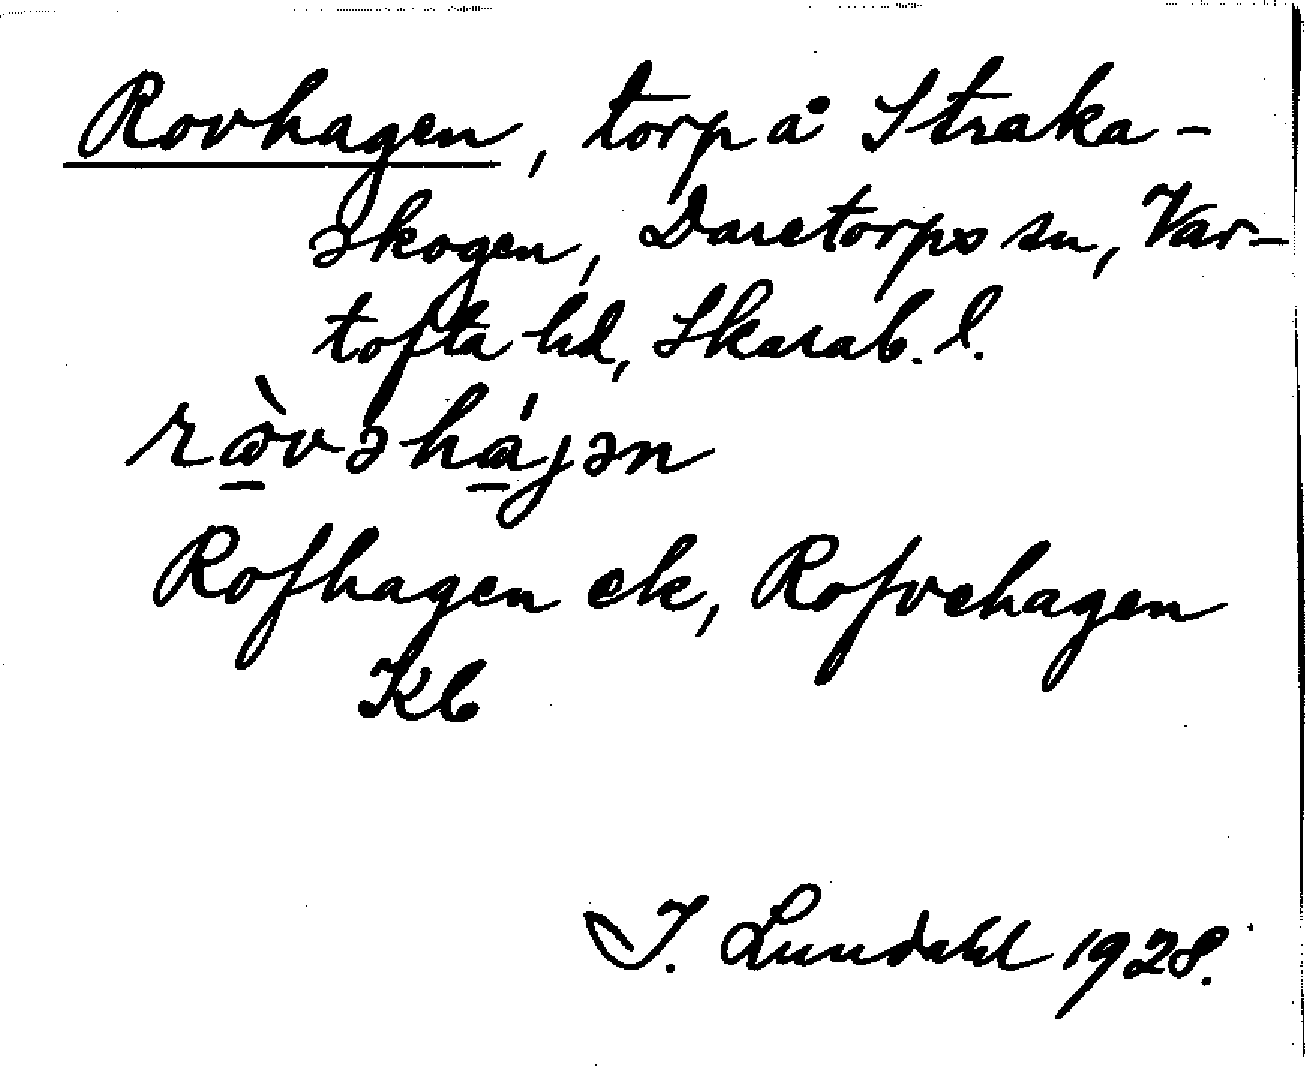 Rovhagen, torp å Straka-
skogen, Daretorps sn, Var-
tofta hd, Skarab. l.
ròvəhájən
Rofhagen ek, Rofvehagen
Kb
I. Lundahl 1928.